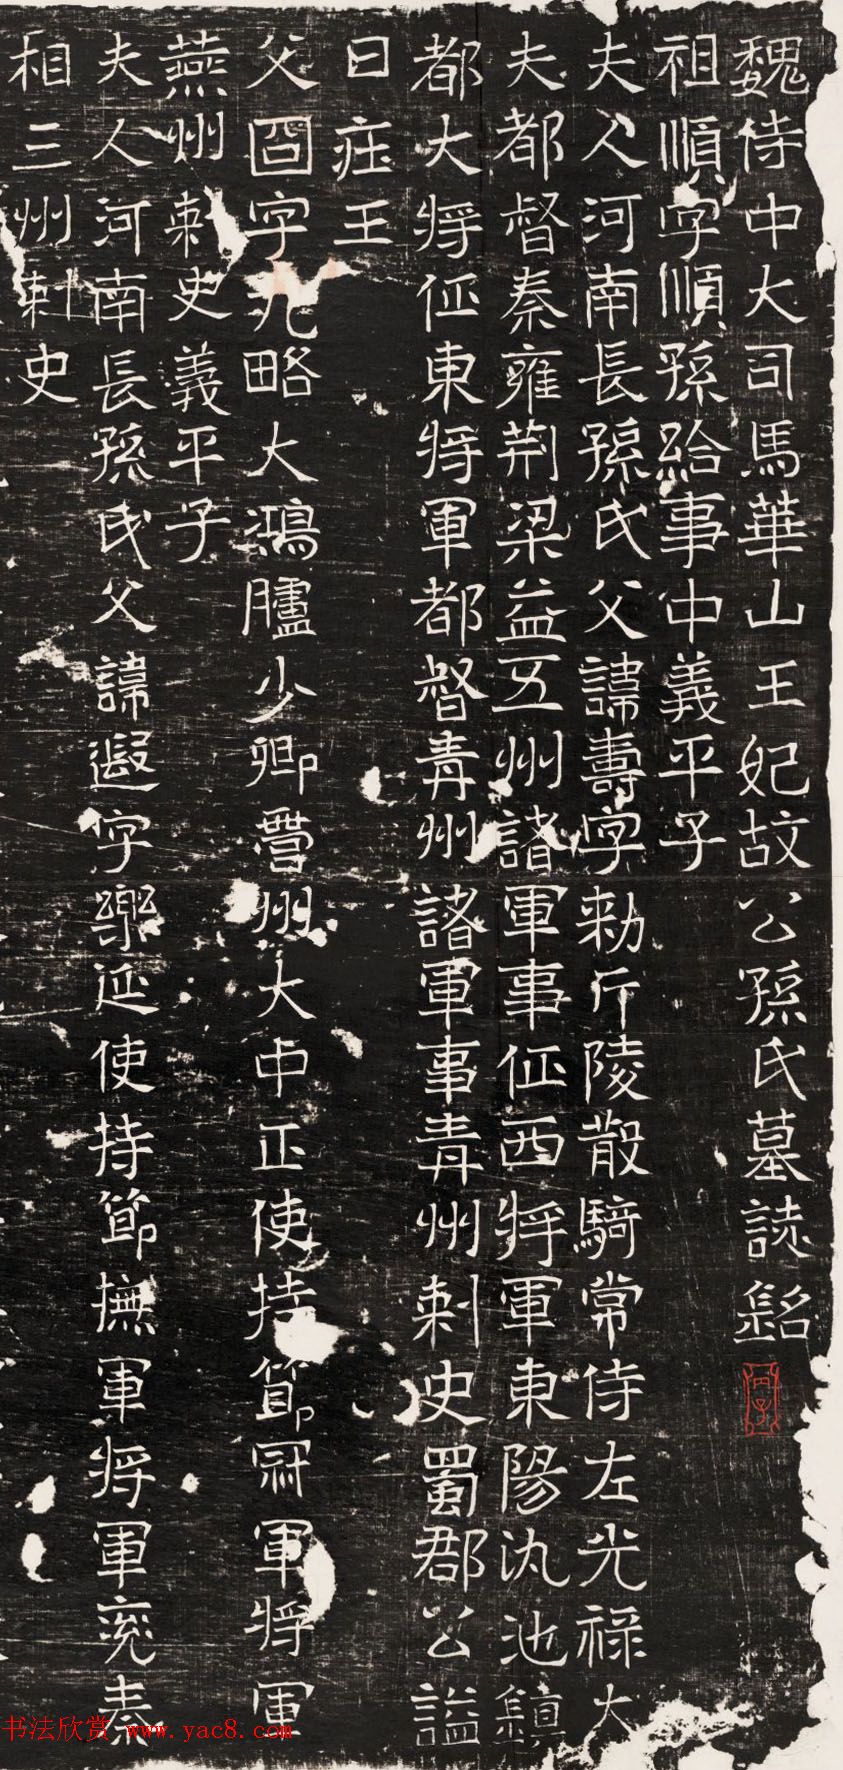 魏侍中大司馬華山王妃故公孫氏墓誌銘
祖順字順孫給事中義平子
夫人河南長孫氏父諱壽字勑斤陵散騎常侍左光祿大
夫都督秦雍荆梁益五州諸軍事征西將軍東陽仇池鎮
都大將征東將軍都督青州諸軍事青州刺史蜀郡公謚
曰莊王
父冏字九略大鴻臚少卿營州大中正使持節冠軍將軍
燕州刺史義平子
夫人河南長孫氏父諱遐字樂延使持節撫軍將軍兖秦
相三州刺史
书法欣赏 www.yac8.com